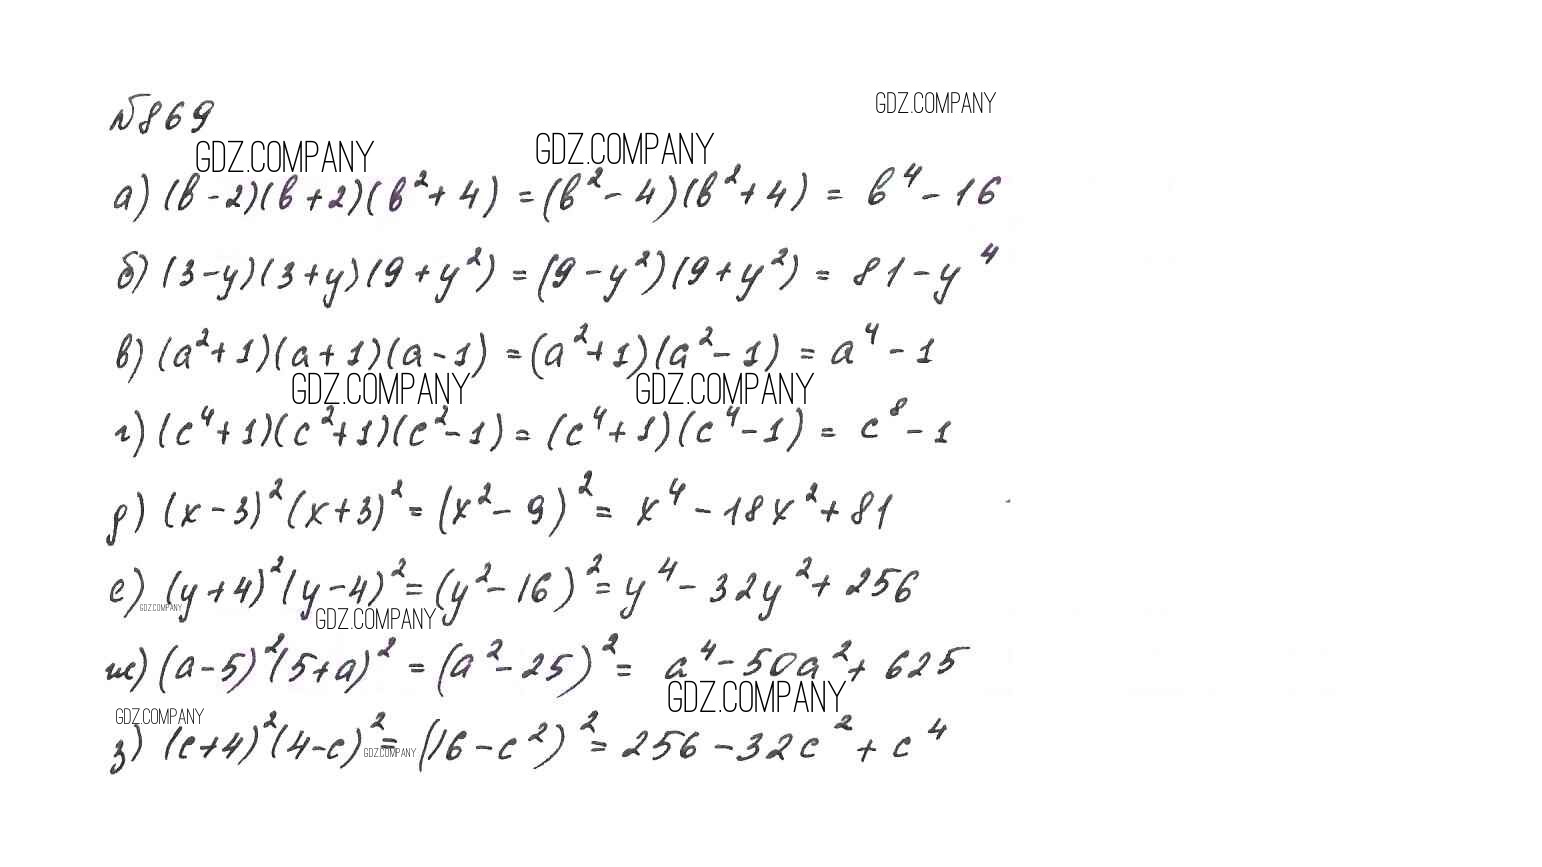 №869
GDZ.COMPANY
GDZ.COMPANY GDZ.COMPANY
а) (b-2)(b+2)(b²+4) = (b²-4)(b²+4) = b⁴-16
б) (3-y)(3+y)(9+y²) = (9-y²)(9+y²) = 81-y⁴
в) (a²+1)(a+1)(a-1) = (a²+1)(a²-1) = a⁴-1
GDZ.COMPANY GDZ.COMPANY
г) (c⁴+1)(c²+1)(c²-1) = (c⁴+1)(c⁴-1) = c⁸-1
д) (x-3)²(x+3)² = (x²-9)² = x⁴-18x²+81
е) (y+4)²(y-4)² = (y²-16)² = y⁴-32y²+256
GDZ.COMPANY GDZ.COMPANY
ж) (a-5)²(5+a)² = (a²-25)² = a⁴-50a²+625
GDZ.COMPANY
GDZ.COMPANY
з) (c+4)²(4-c)² = (16-c²)² = 256-32c²+c⁴
GDZ.COMPANY